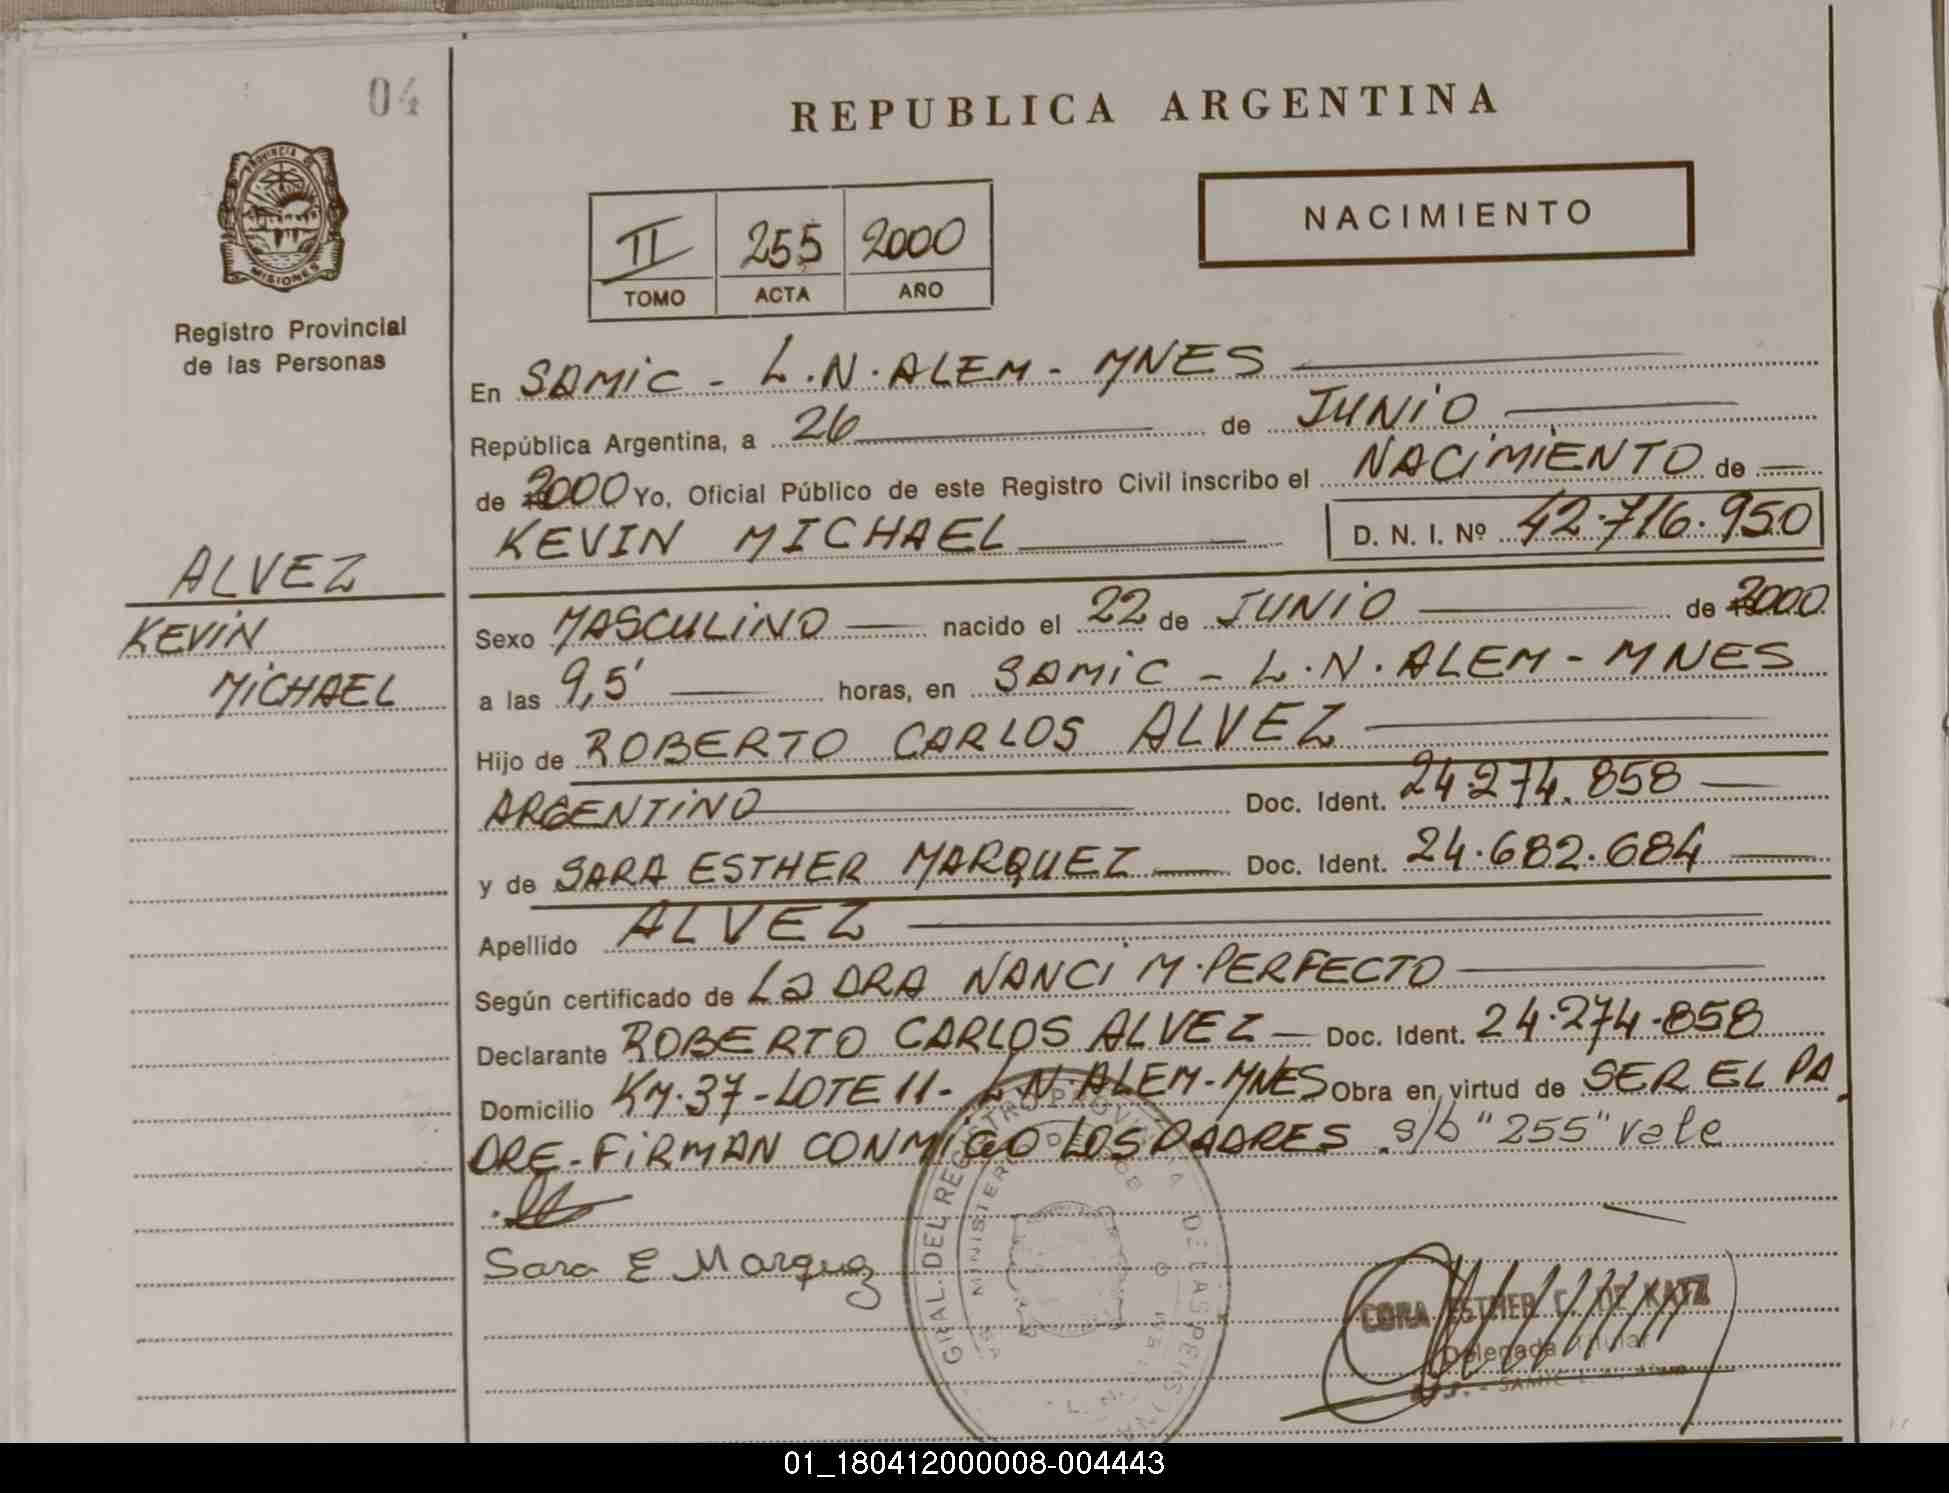 04
REPUBLICA ARGENTINA
PROVINCIA DE
MISIONES
Registro Provincial
de las Personas
II 255 2000
TOMO ACTA AÑO
NACIMIENTO
En SAMIC - L.N. ALEM - MNES
República Argentina, a 26 de JUNIO
de 2000 Yo, Oficial Público de este Registro Civil inscribo el NACIMIENTO de
KEVIN MICHAEL D. N. I. Nº 42.716.950
ALVEZ
KEVIN
MICHAEL
Sexo MASCULINO nacido el 22 de JUNIO de 2000
a las 9,5' horas, en SAMIC - L.N. ALEM - MNES
Hijo de ROBERTO CARLOS ALVEZ
ARGENTINO Doc. Ident. 24.274.858
y de SARA ESTHER MARQUEZ Doc. Ident. 24.682.684
Apellido ALVEZ
Según certificado de La DRA NANCI M. PERFECTO
Declarante ROBERTO CARLOS ALVEZ Doc. Ident. 24.274.858
Domicilio KM.37 - LOTE 11 - L.N. ALEM - MNES Obra en virtud de SER EL PA
DRE - FIRMAN CONMIGO LOS PADRES. s/b "255" vale
Sara E Marquez
GRAL. DEL REGISTRO PROVINCIAL DE LAS PERSONAS
MINISTERIO DE
CORA ESTHER C. DE KATZ
Delegada Titular
SAMIC L.N. Alem
01_180412000008-004443